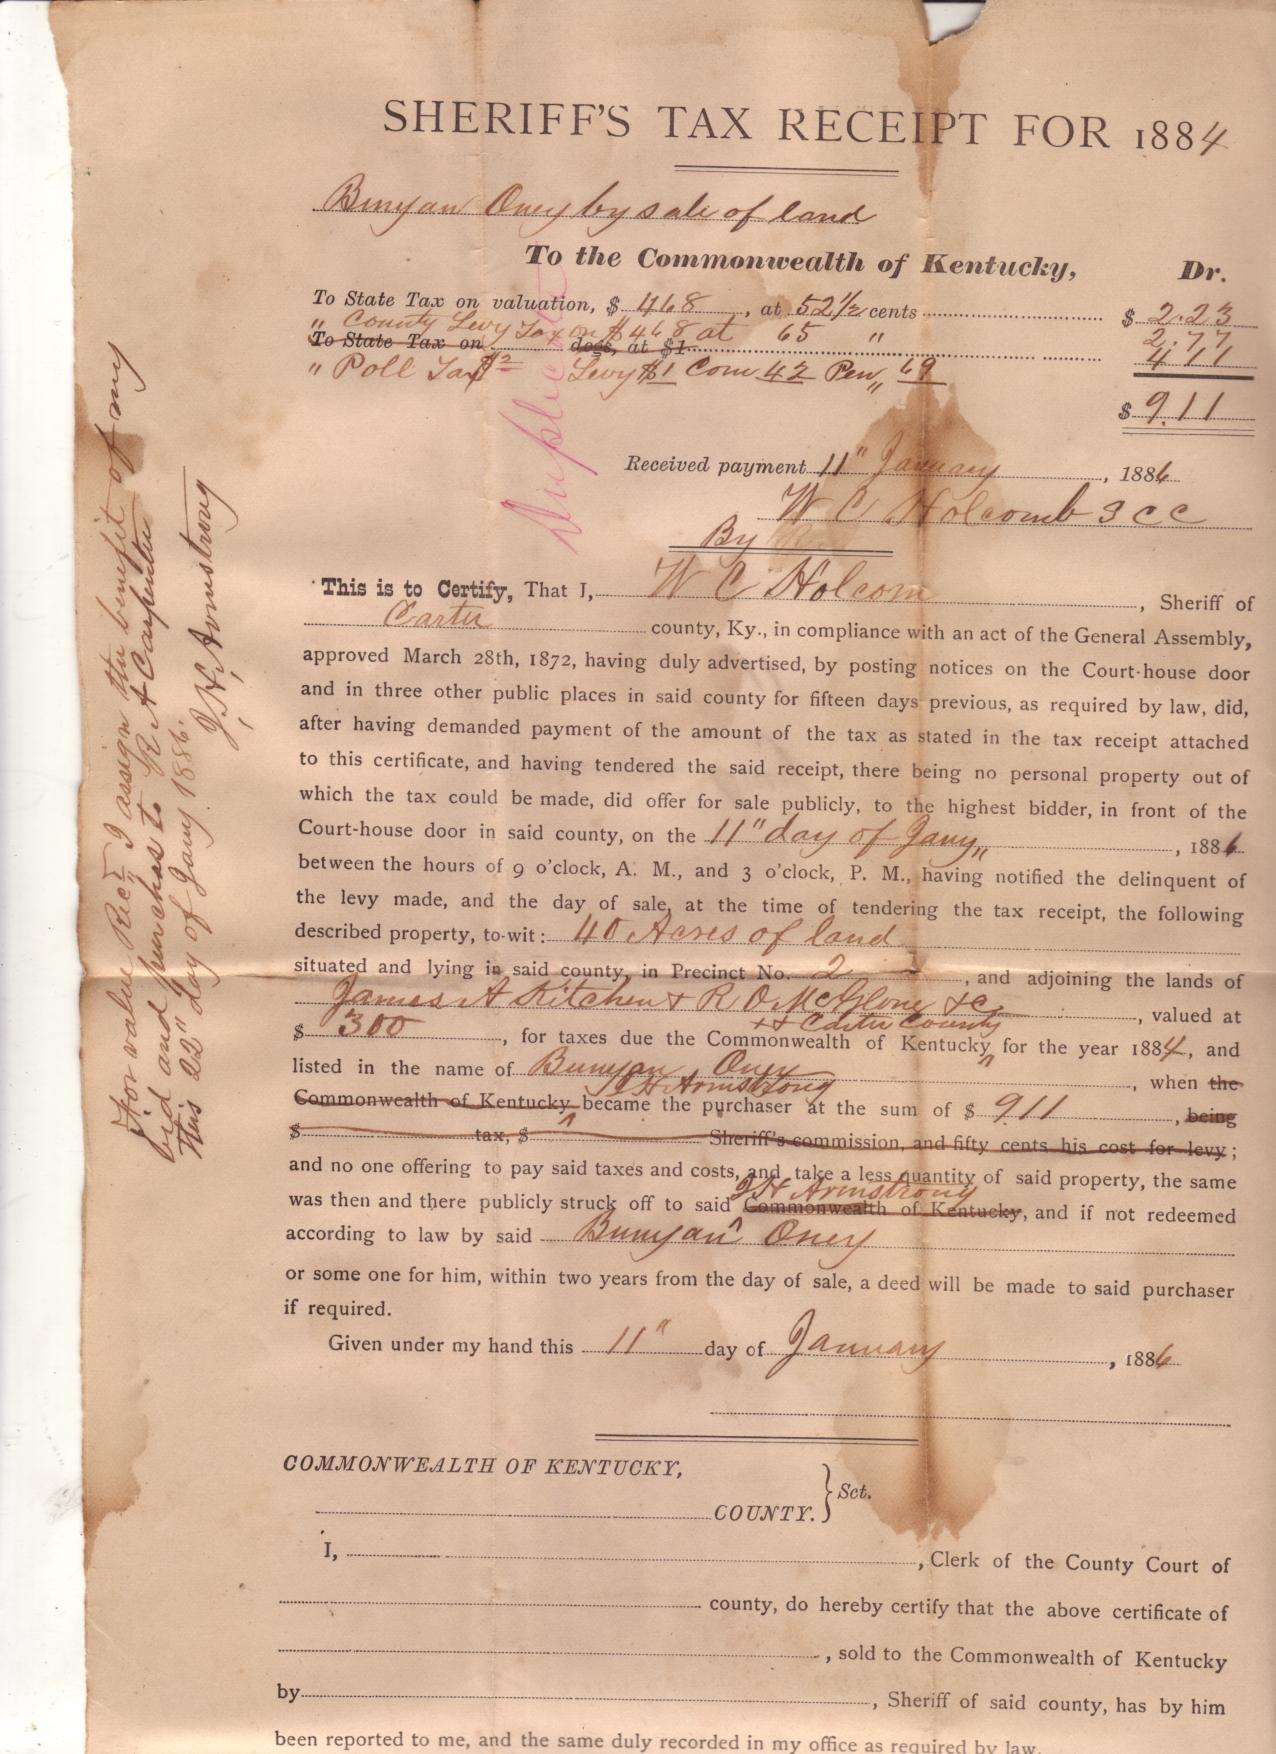 SHERIFF'S TAX RECEIPT FOR 1884
Bunyan Oney by sale of land
To the Commonwealth of Kentucky, Dr.
To State Tax on valuation, $ 468, at 52½ cents $ 2.23
" County Levy Tax on $468 at 65 " 2.77
To State Tax on dogs, at $1
" Poll Tax $2 Levy $1 Com 42 Pen " 69 4 11
$ 9.11
Duplicate
Received payment 11" January, 1886
W C Holcomb S C C
By
This is to Certify, That I, W C Holcom, Sheriff of
Carter county, Ky., in compliance with an act of the General Assembly,
approved March 28th, 1872, having duly advertised, by posting notices on the Court-house door
and in three other public places in said county for fifteen days previous, as required by law, did,
after having demanded payment of the amount of the tax as stated in the tax receipt attached
to this certificate, and having tendered the said receipt, there being no personal property out of
which the tax could be made, did offer for sale publicly, to the highest bidder, in front of the
Court-house door in said county, on the 11" day of Jany", 1886
between the hours of 9 o'clock, A. M., and 3 o'clock, P. M., having notified the delinquent of
the levy made, and the day of sale, at the time of tendering the tax receipt, the following
described property, to-wit: 40 Acres of land
situated and lying in said county, in Precinct No. 2, and adjoining the lands of
James A Kitchen & R O McGlone &c, valued at
& Carter County
$ 300, for taxes due the Commonwealth of Kentucky for the year 1884, and
listed in the name of Bunyan Oney, when the
J H Armstrong
Commonwealth of Kentucky became the purchaser at the sum of $ 9.11, being
$ tax, $ Sheriff's commission, and fifty cents his cost for levy;
and no one offering to pay said taxes and costs, and take a less quantity of said property, the same
J H Armstrong
was then and there publicly struck off to said Commonwealth of Kentucky, and if not redeemed
according to law by said Bunyan Oney
or some one for him, within two years from the day of sale, a deed will be made to said purchaser
if required.
Given under my hand this 11" day of January, 1886
COMMONWEALTH OF KENTUCKY,
COUNTY. } Sct.
I, , Clerk of the County Court of
county, do hereby certify that the above certificate of
, sold to the Commonwealth of Kentucky
by , Sheriff of said county, has by him
been reported to me, and the same duly recorded in my office as required by law.
For value Recd I assign the benefit of my
bid and purchas to R A Carpenter
this 22" day of Jany 1886.
J. H. Armstrong